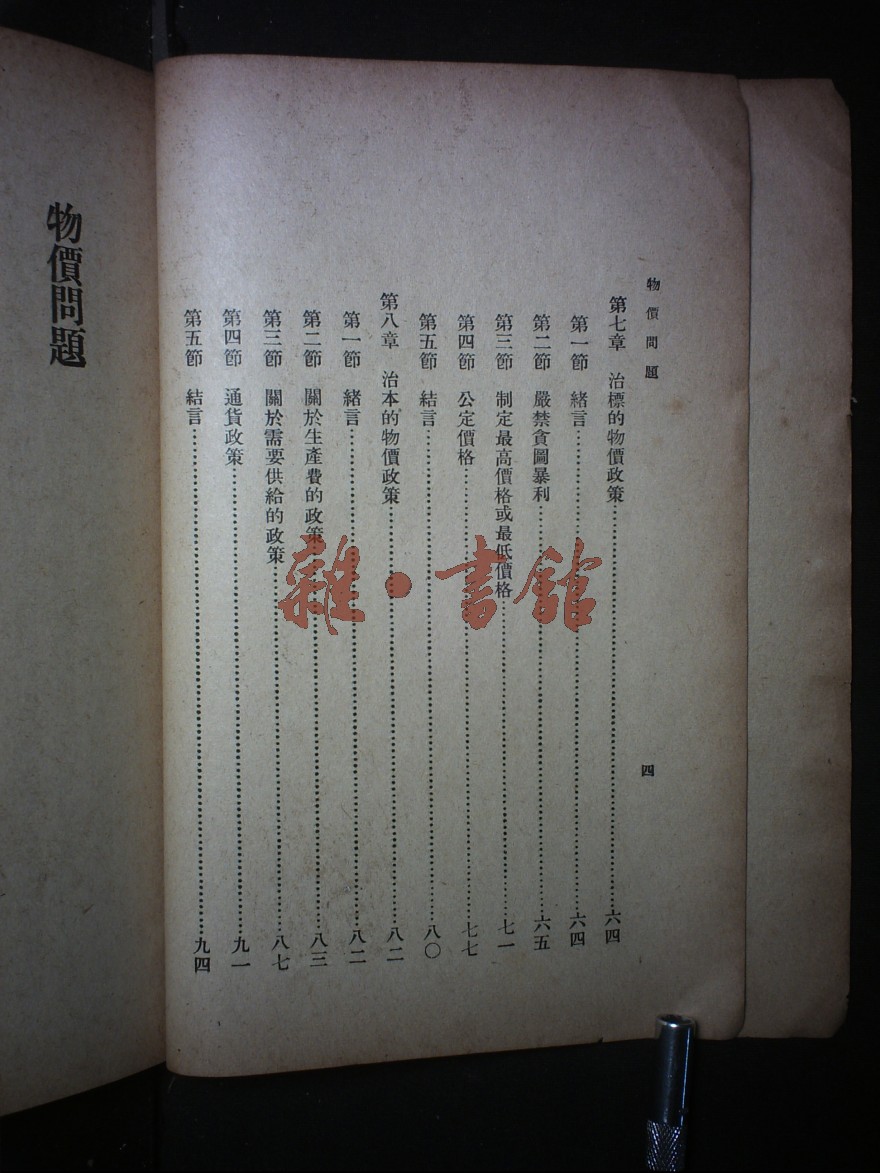 物價問題
四
第七章　治標的物價政策……六四
第一節　緒言……六四
第二節　嚴禁貪圖暴利……六五
第三節　制定最高價格或最低價格……七一
第四節　公定價格……七七
第五節　結言……八〇
第八章　治本的物價政策……八二
第一節　緒言……八二
第二節　關於生產費的政策……八三
第三節　關於需要供給的政策……八七
第四節　通貨政策……九一
第五節　結言……九四
物價問題
雜・書館